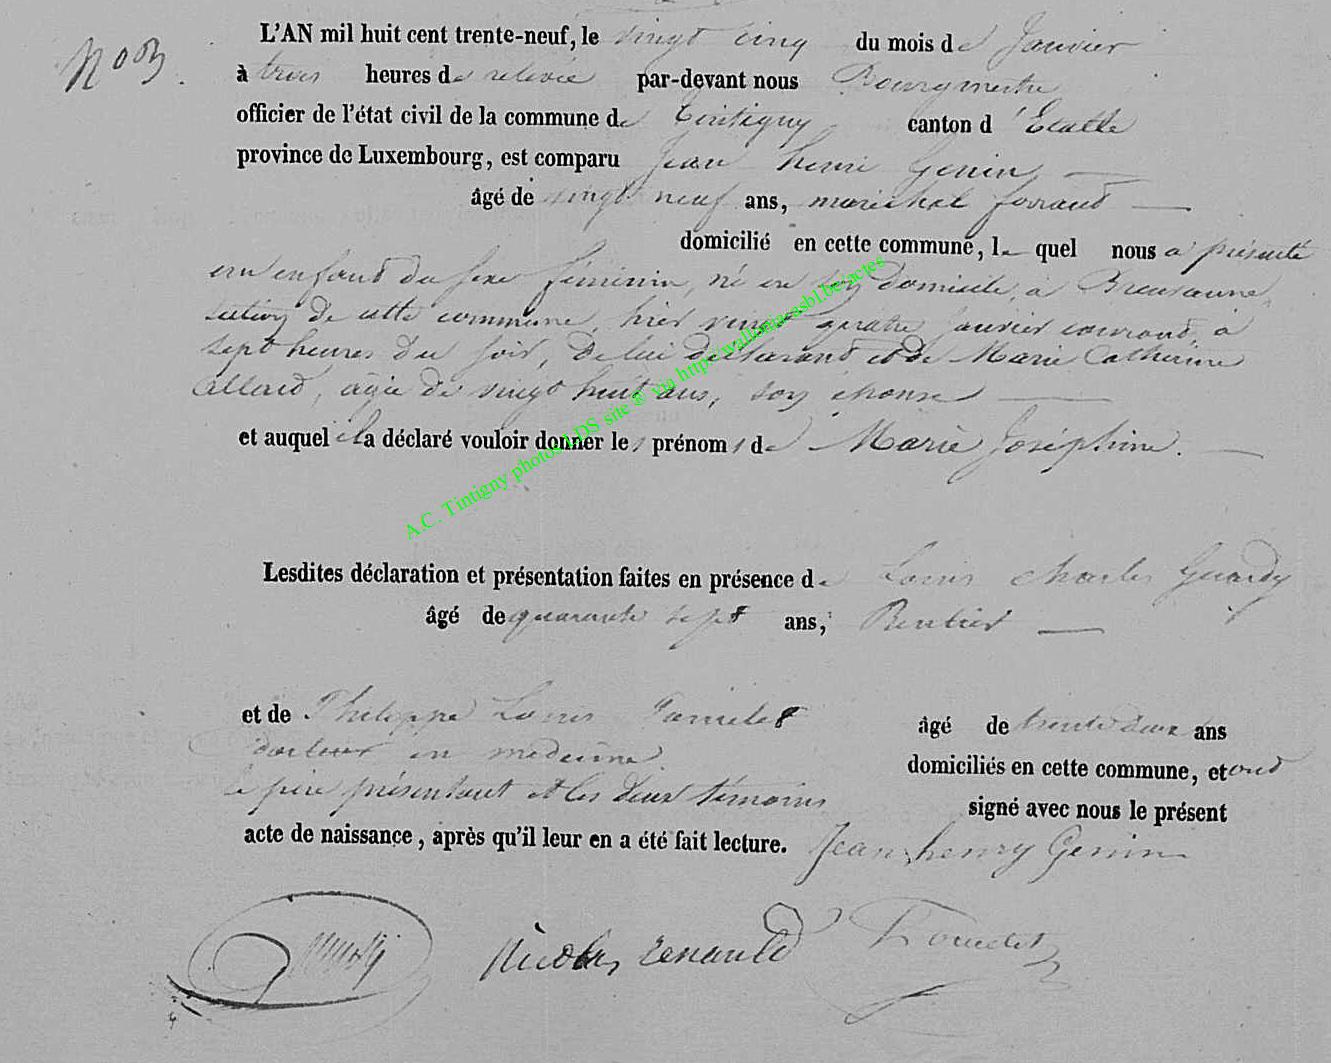 N° 3.
L'AN mil huit cent trente-neuf, le vingt cinq du mois de Janvier
à trois heures de relevée par-devant nous Bourgmestre
officier de l'état civil de la commune de Tintigny canton d'Etalle
province de Luxembourg, est comparu Jean henri Genin,
âgé de vingt neuf ans, maréchal ferrand
domicilié en cette commune, lequel nous a présenté
un enfant du sexe féminin, né en son domicile, a Breuvanne,
section de cette commune, hier vingt quatre Janvier courant, à
sept heures du soir, de lui déclarant et de Marie Catherine
Allard, agée de vingt huit ans, son épouse
et auquel il a déclaré vouloir donner les prénoms de Marie Joséphine.
Lesdites déclaration et présentation faites en présence de Louis Charles
âgé de quarante sept ans, Rentier
et de Philippe Louis âgé de trente deux ans
docteur en medecine. domiciliés en cette commune, et ont
le père présentant et les deux témoins signé avec nous le présent
acte de naissance, après qu'il leur en a été fait lecture. Jean henry Genin
Nicolas renauld
A.C. Tintigny photos LDS site ® via http://walloniacasbl.be/actes